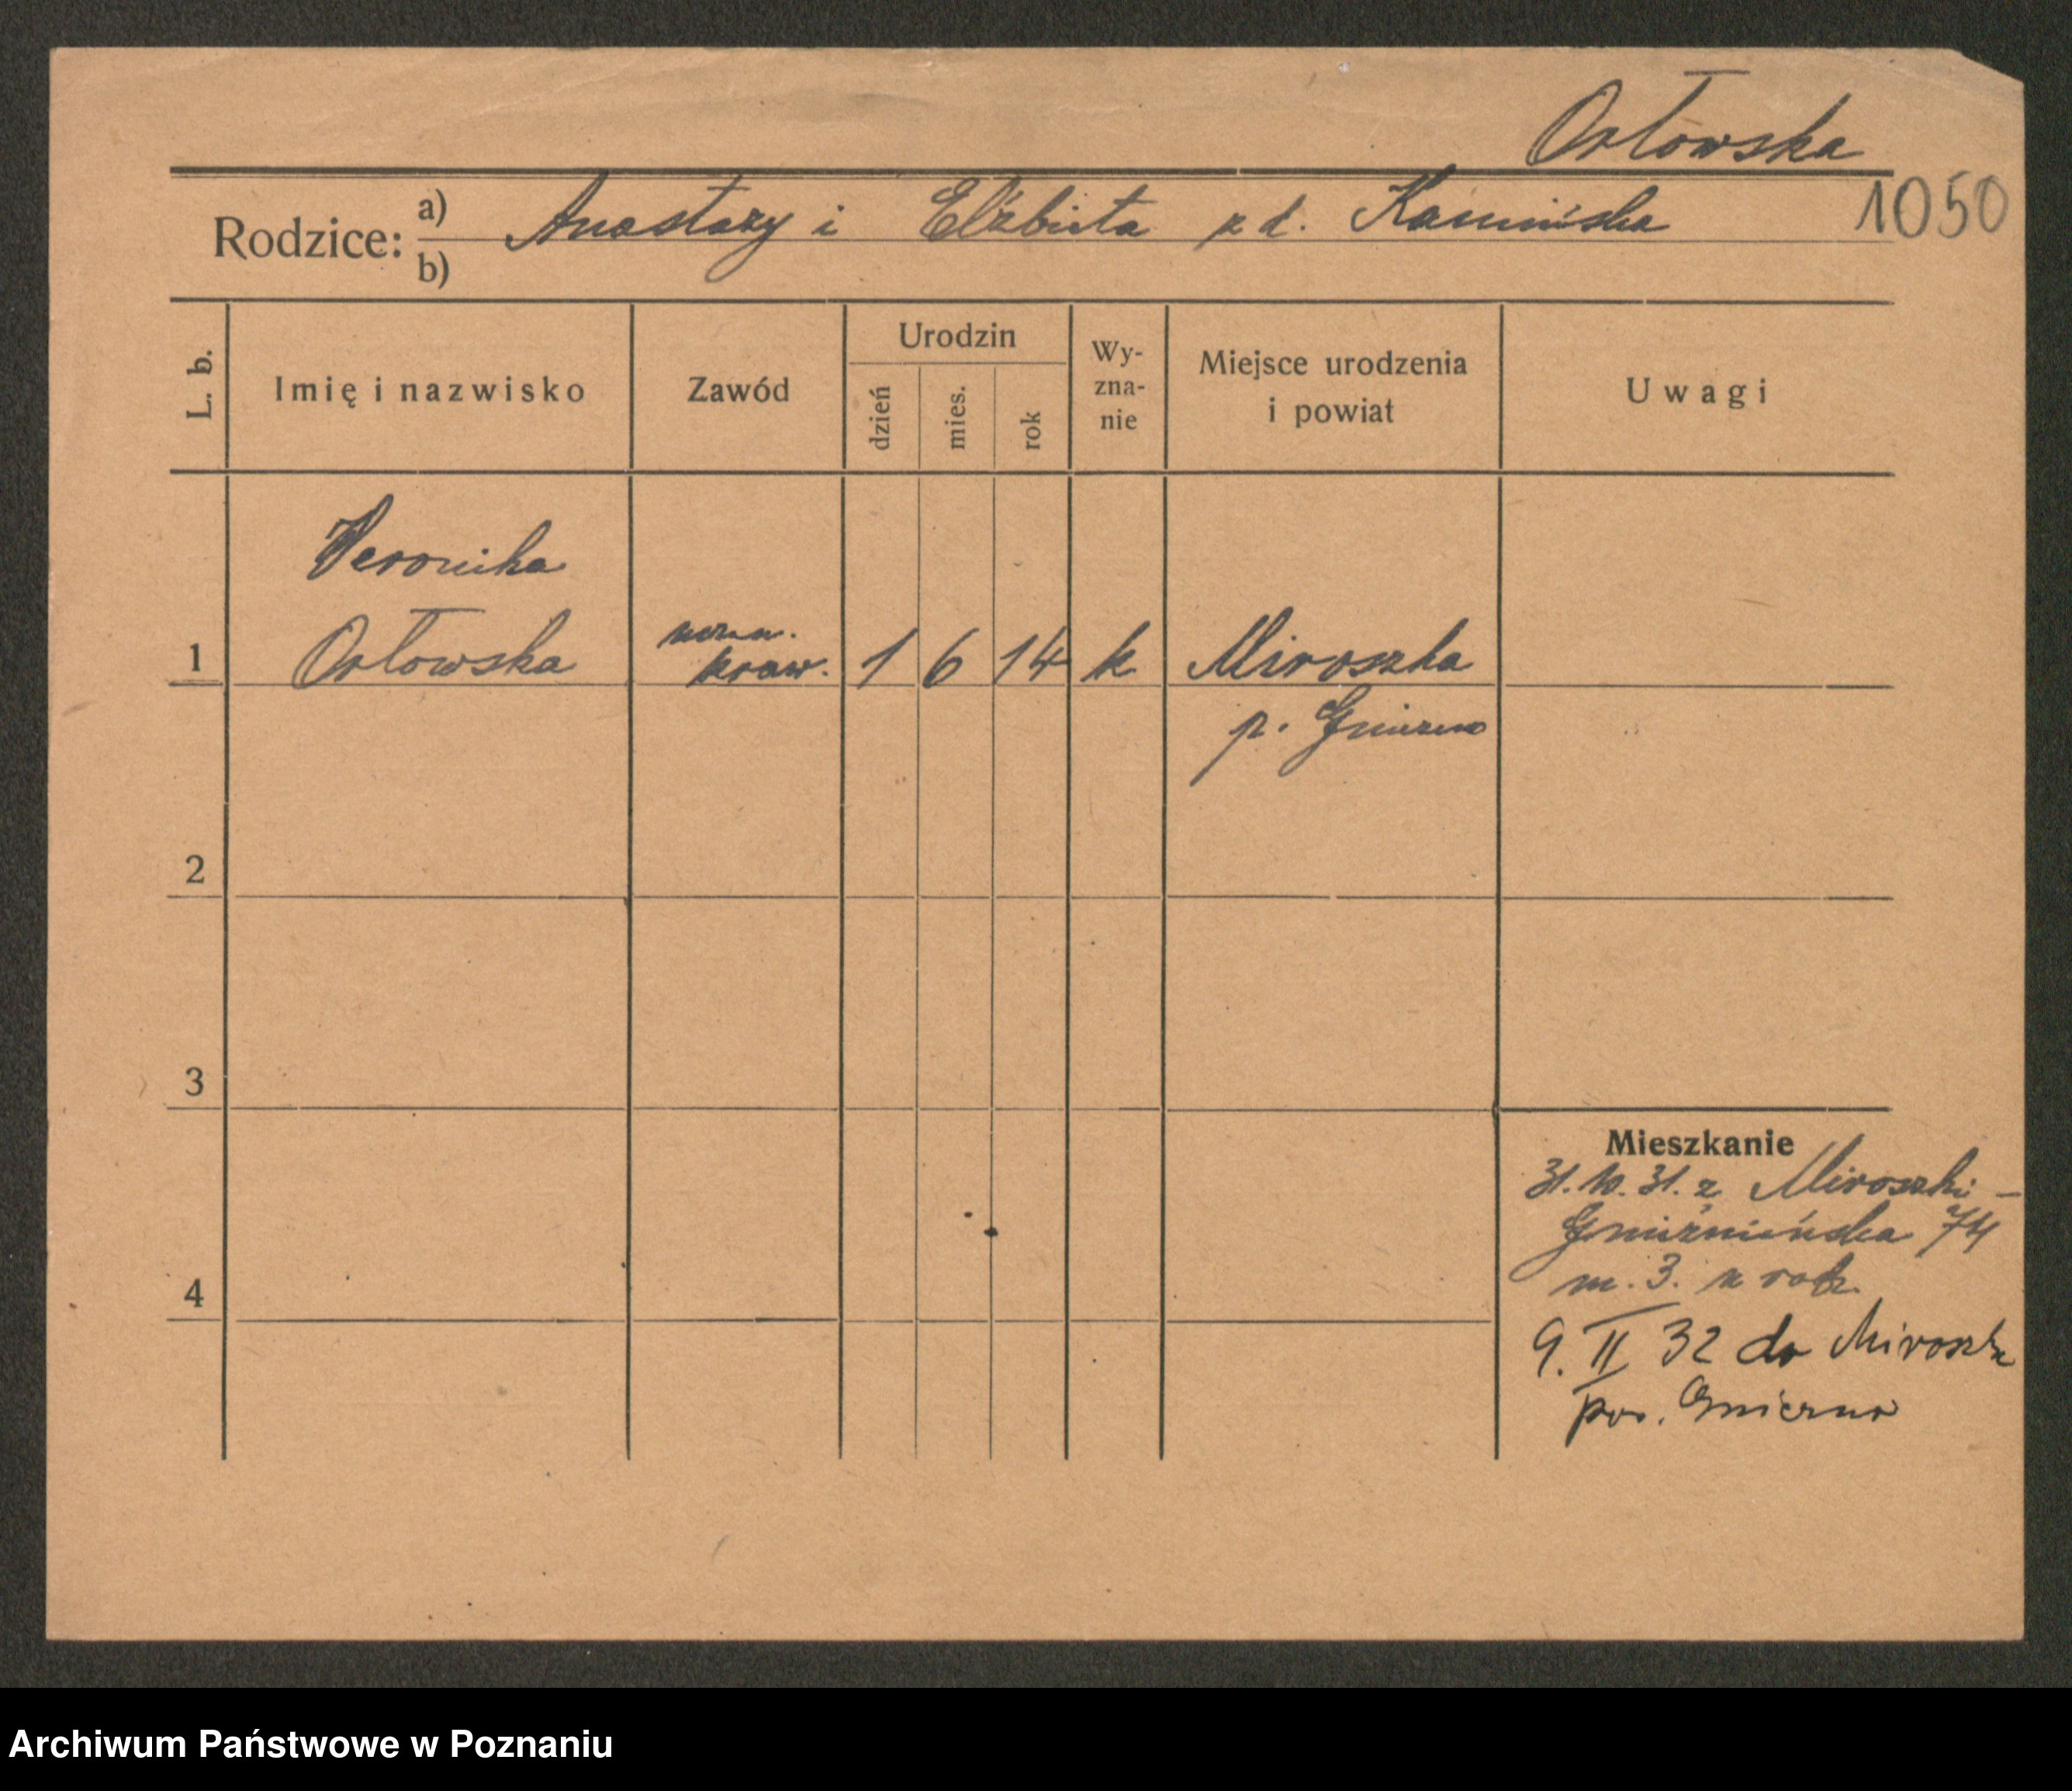 Orłowska
1050
Rodzice: a) Anastazy i Elżbieta z d. Kamińska
b)
L. b.
Imię i nazwisko
Zawód
Urodzin
dzień
mies.
rok
Wy-
zna-
nie
Miejsce urodzenia
i powiat
Uwagi
Weronika
1 Orłowska uczen. kraw. 1 6 14 k Miroszka
p. Gniezno
2
3
4
Mieszkanie
31.10.31. z Miroszki -
Gnieźnieńska 74
m. 3. u rodz.
9. II 32 do Miroszk
pow. Gniezno
Archiwum Państwowe w Poznaniu